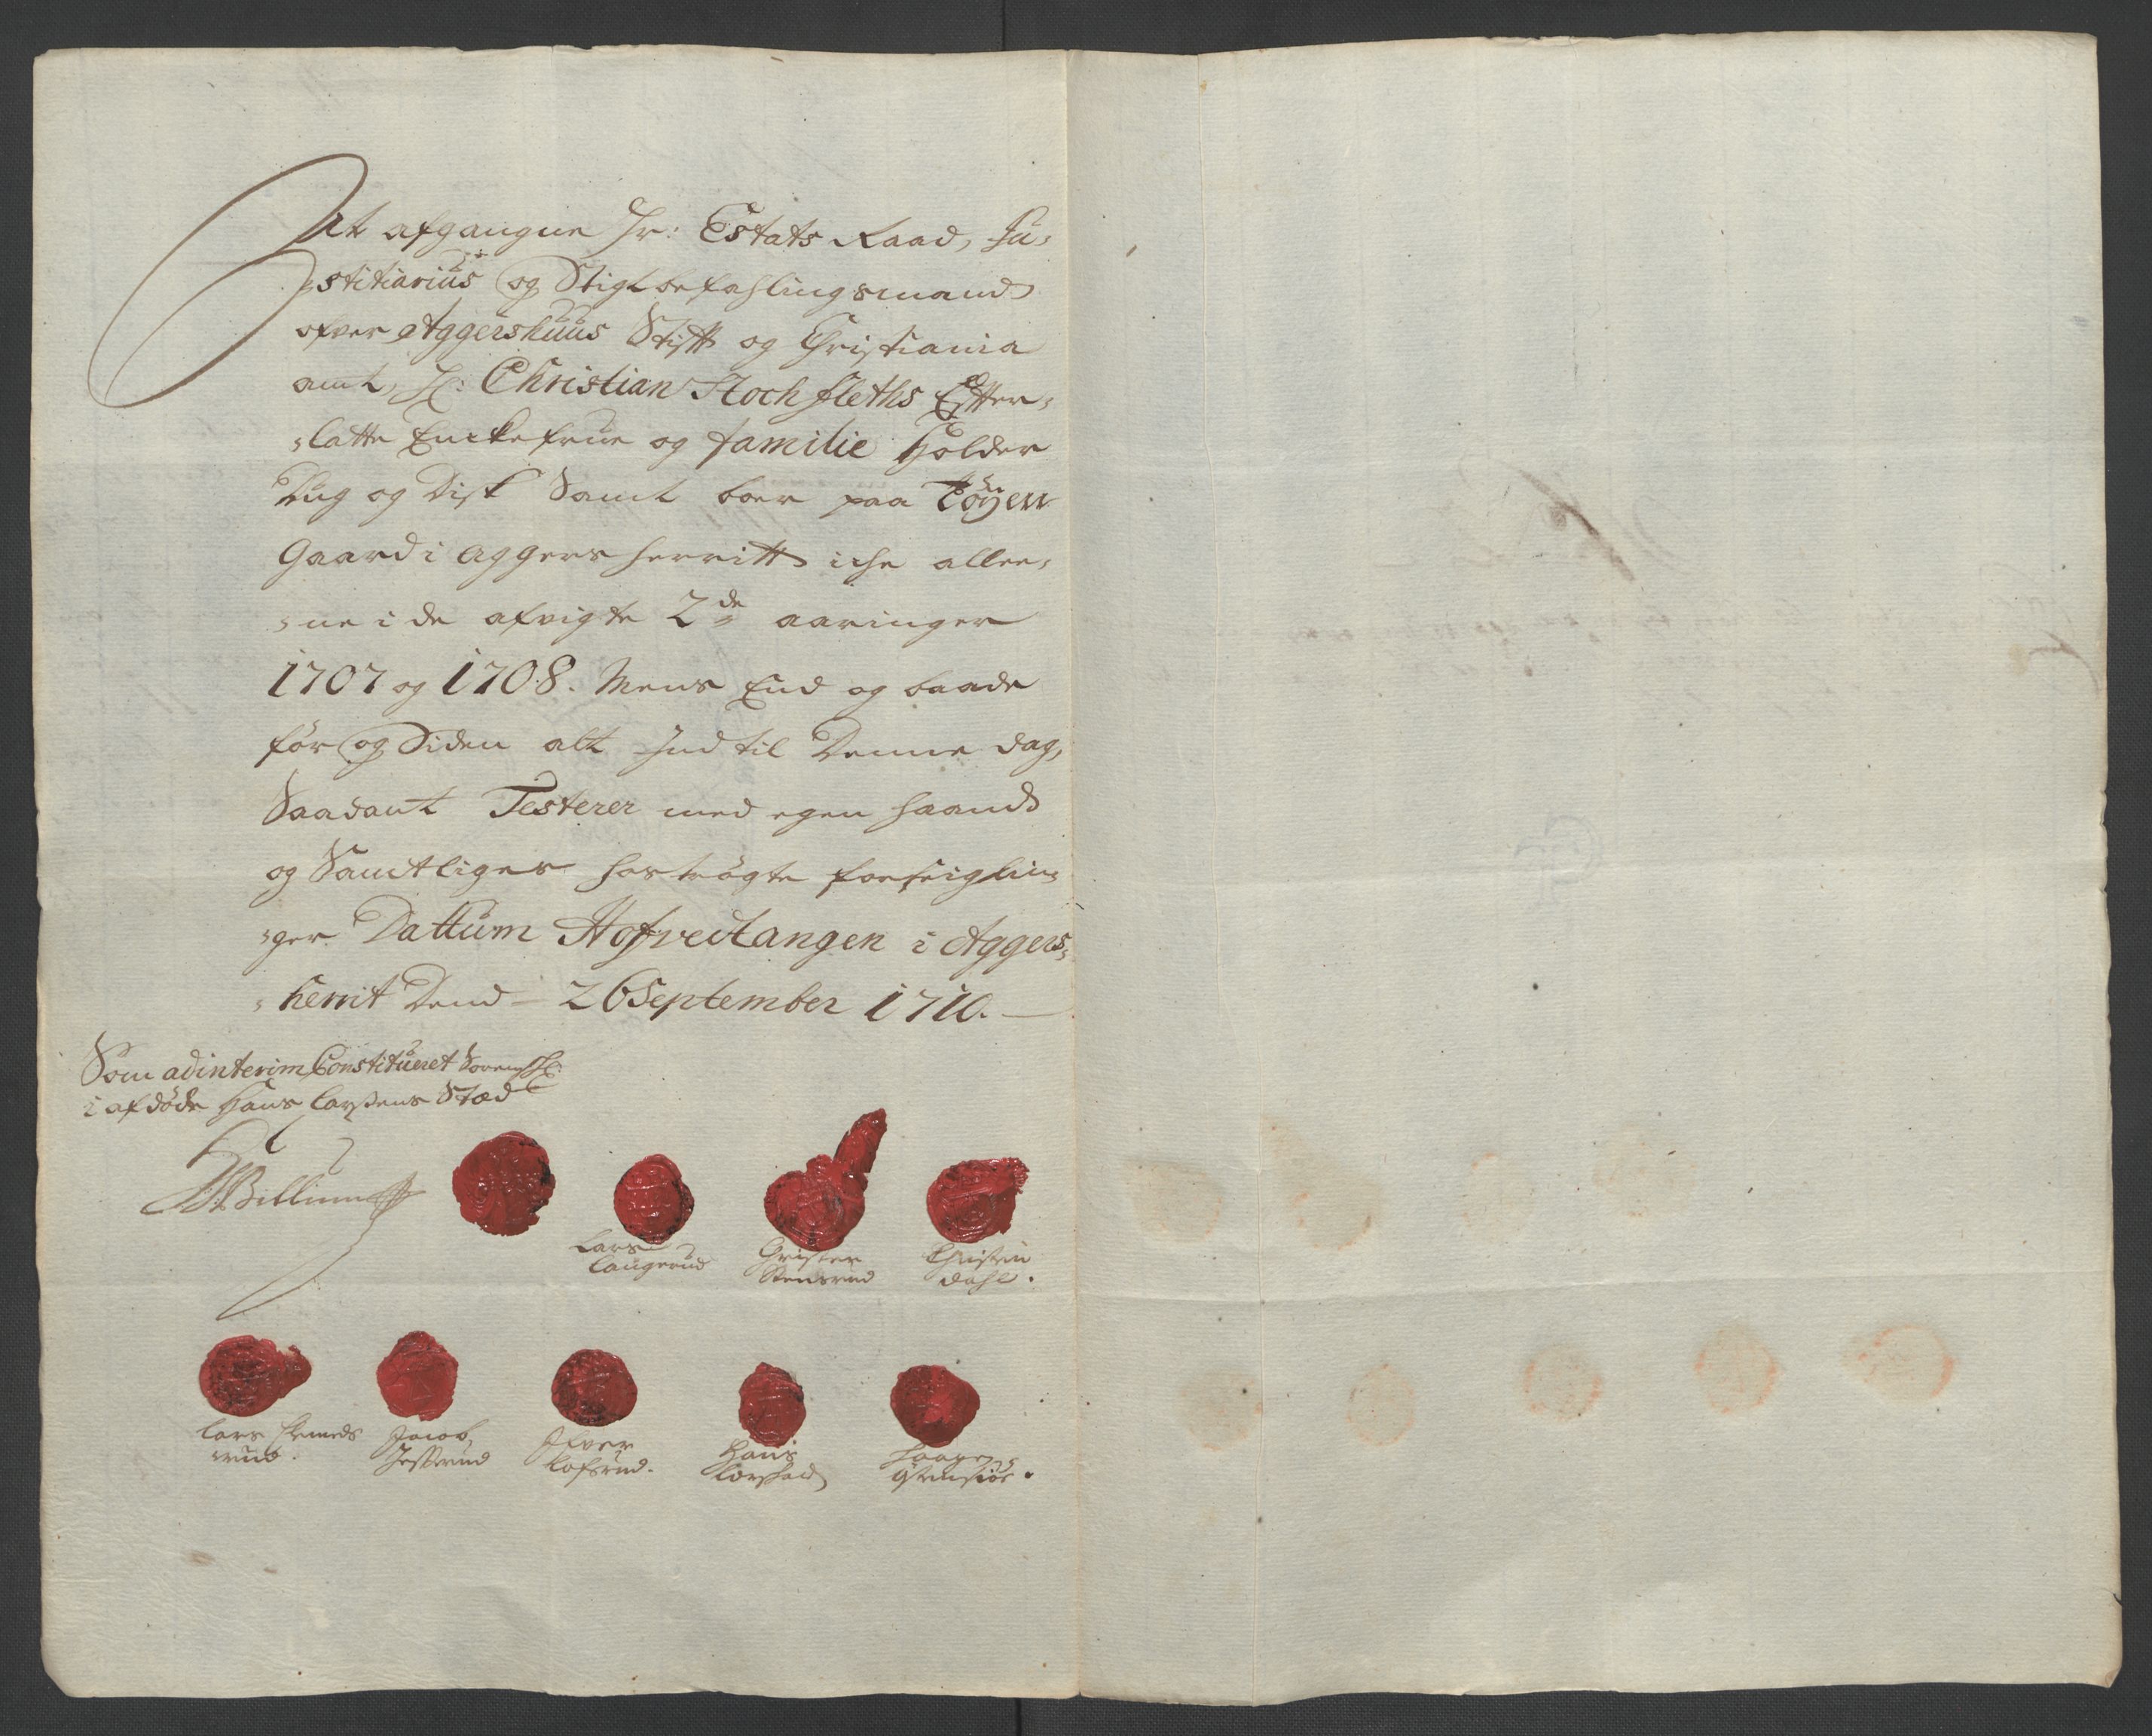 At afgangne Hr: Estats Raad, Ju-
stitiarius og Stigtbefahlingsmand
ofver Aggershuus Stift og Christiania
amt, Hr: Christian Stochfleths Efter-
-latte Enckefrue og familie Holder
Dug og Disk Samt boer paa Töyen
Gaard i Aggers herritt iche allee-
-ne i de afvigte 2de aaringer
1707 og 1708. Mens End og baade
för og Siden alt Ind til Denne dag,
Saadant Testerer med egen haand
og Samtliges hoströgte forseiglin-
-ger. Dattum Hofvettangen i Aggers-
-herrit Dend - 26 September 1710. -
Som adinterim Constitueret Sorenskr:
i afdöde Hans Larsens Stæd
Lars
Laugerud
Christen
Stensrud
Christen
dahl.
Lars
rud.
Jacob
Ifver
Lofsrud.
Hans
Haagen